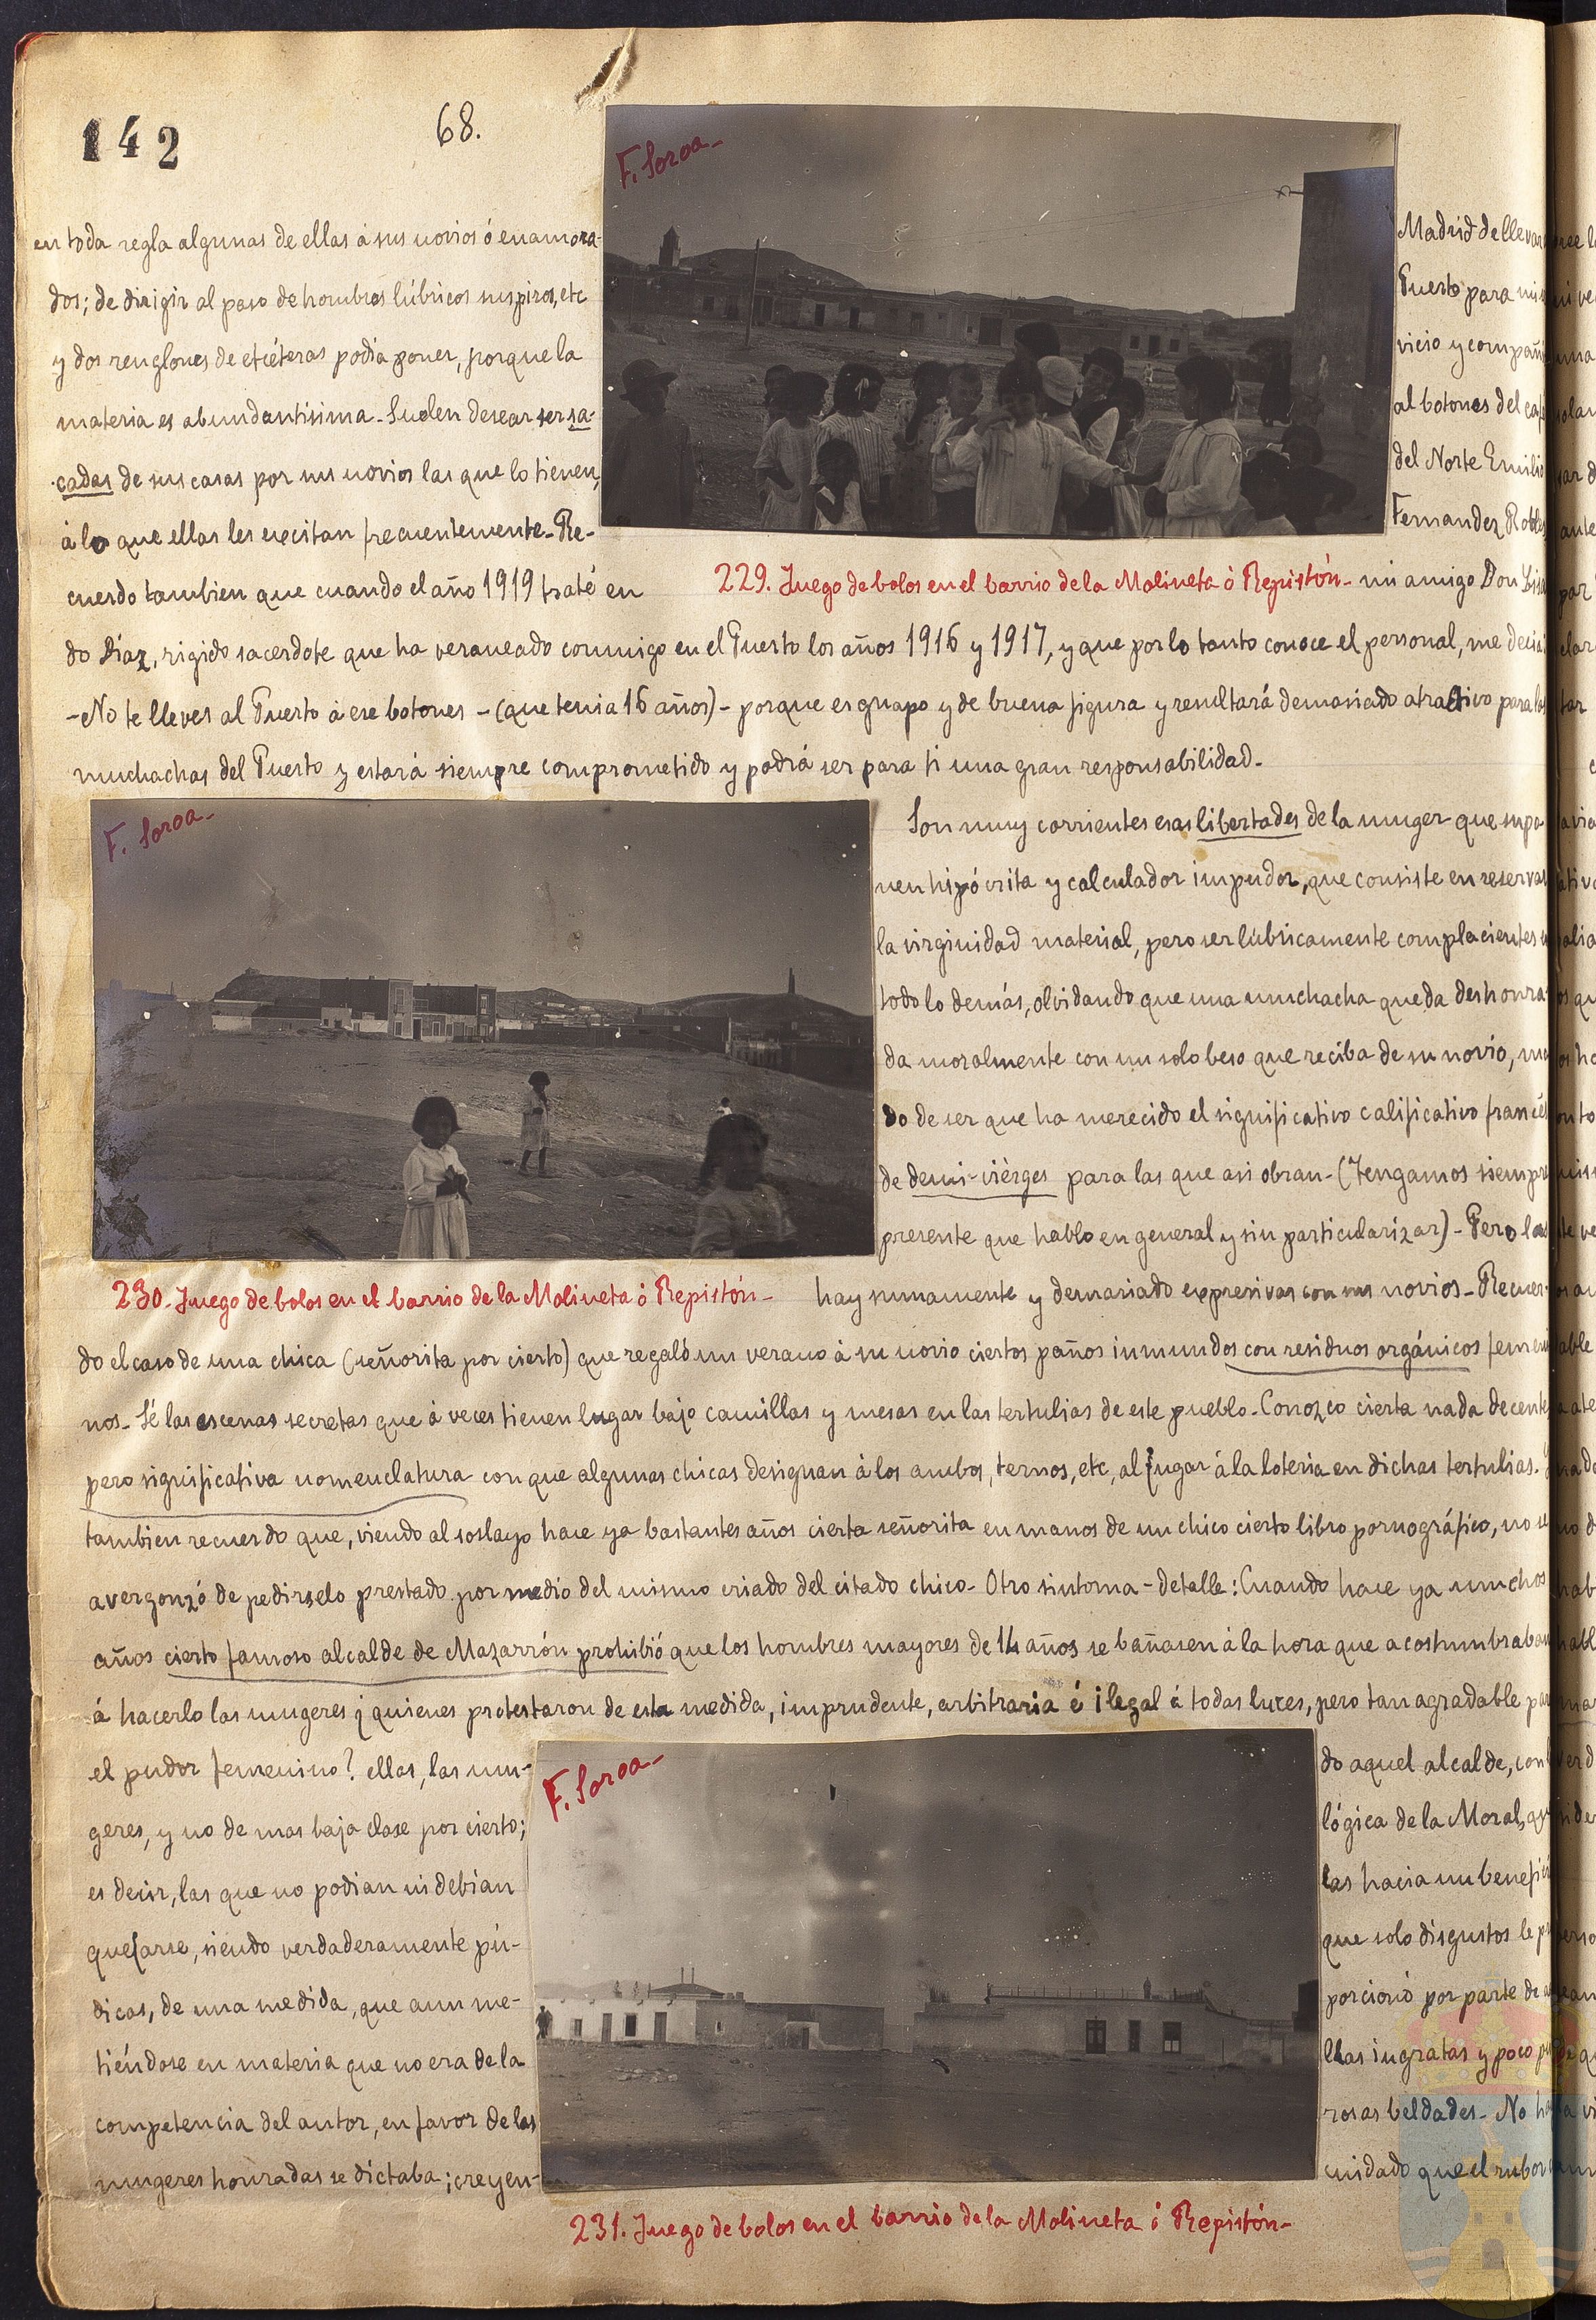 142
68.
F. Soroa-
en toda regla algunas de ellas á sus novios ó enamora-
dos; de dirigir al paso de hombres lúbricos suspiros, etc
y dos renglones de etcéteras podia poner, porque la
materia es abundantisima. Suelen desear ser sa-
cadas de sus casas por sus novios las que lo tienen,
á lo que ellas les excitan frecuentemente. Re-
cuerdo tambien que cuando el año 1919 traté en
Madrid de llevar
Puerto para mi
vicio y compañi
al botones del caf
del Norte Emilio
Fernandez Robles
229. Juego de bolos en el barrio de la Molineta ó Repistón-
mi amigo Don
do Díaz, rigido sacerdote que ha veraneado conmigo en el Puerto los años 1916 y 1917, y que por lo tanto conoce el personal, me decia:
-No te lleves al Puerto á ese botones -(que tenia 16 años)- porque es guapo y de buena figura y resultará demasiado atractivo para las
muchachas del Puerto y estará siempre comprometido y podrá ser para ti una gran responsabilidad.
F. Soroa-
Son muy corrientes esas libertades de la muger que supo
nen hipócrita y calculador impudor, que consiste en reservar
la virginidad material, pero ser lúbricamente complacientes
todo lo demás, olvidando que una muchacha queda deshonra
da moralmente con un solo beso que reciba de su novio, mo
do de ser que ha merecido el significativo calificativo francés
de demi-viérges para las que asi obran-(Tengamos siempre
presente que hablo en general y sin particularizar)- Pero las
230. Juego de bolos en el barrio de la Molineta ó Repistón-
hay sumamente y demasiado expresivas con sus novios. Recuer-
do el caso de una chica (señorita por cierto) que regaló un verano á su novio ciertos paños inmundos con residuos orgánicos femeni
nos. Sé las escenas secretas que á veces tienen lugar bajo camillas y mesas en las tertulias de este pueblo. Conozco cierta nada decente
pero significativa nomenclatura con que algunas chicas designan á los ambos, ternos, etc, al jugar á la loteria en dichas tertulias. Y
tambien recuerdo que, viendo al soslayo hace ya bastantes años cierta señorita en manos de un chico cierto libro pornográfico, no se
avergonzó de pedirselo prestado por medio del mismo criado del citado chico. Otro sintoma-detalle: Cuando hace ya muchos
años cierto famoso alcalde de Mazarrón prohibió que los hombres mayores de 14 años se bañasen á la hora que acostumbraban
á hacerlo las mugeres ¿ quienes protestaron de esta medida, imprudente, arbitraria é ilegal á todas luces, pero tan agradable para
el pudor femenino? ellas, las mu-
geres, y no de mas baja clase por cierto;
es decir, las que no podian ni debian
quejarse, siendo verdaderamente pú-
dicas, de una medida, que aun me-
tiéndose en materia que no era de la
competencia del autor, en favor de las
mugeres honradas se dictaba; creyen-
F. Soroa-
do aquel alcalde, con
lógica de la Moral, que
las hacia un benefici
que solo disgustos le pro
porcionó por parte de aque
llas ingratas y poco pudo
rosas beldades. No ha
cuidado que el rubor
231. Juego de bolos en el barrio de la Molineta ó Repistón-